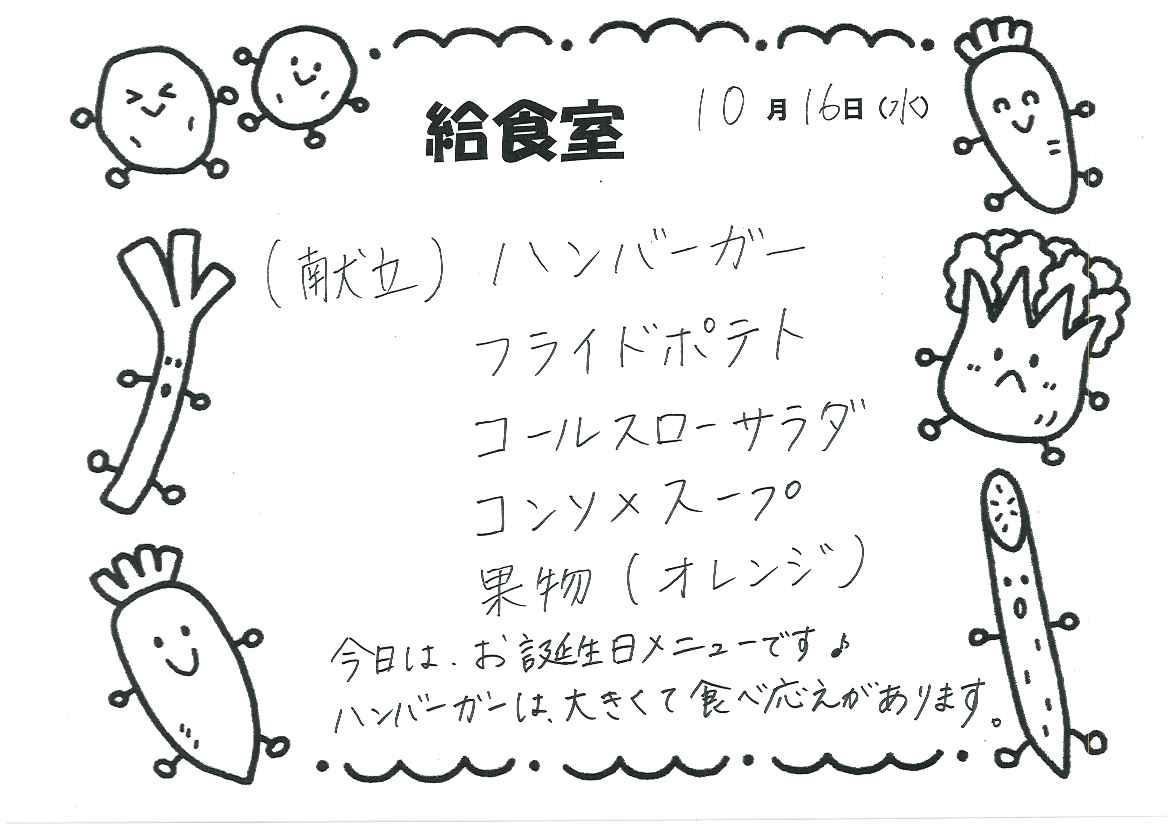 給食室 10月16日(水)
(献立) ハンバーガー
フライドポテト
コールスローサラダ
コンソメスープ
果物(オレンジ)
今日は、お誕生日メニューです♪
ハンバーガーは、大きくて食べ応えがあります。